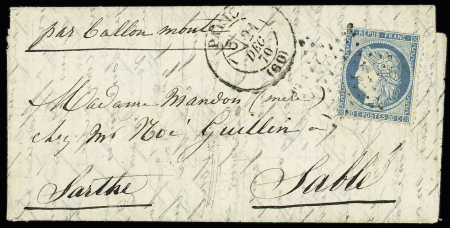 par Ballon monté
PARIS
21
DEC
70
(60)
REPUB. FRANC.
20 C. POSTES 20 C.
à Madame Mandon (mère)
chez Mr Noé Guillin à
Sarthe
Sablé